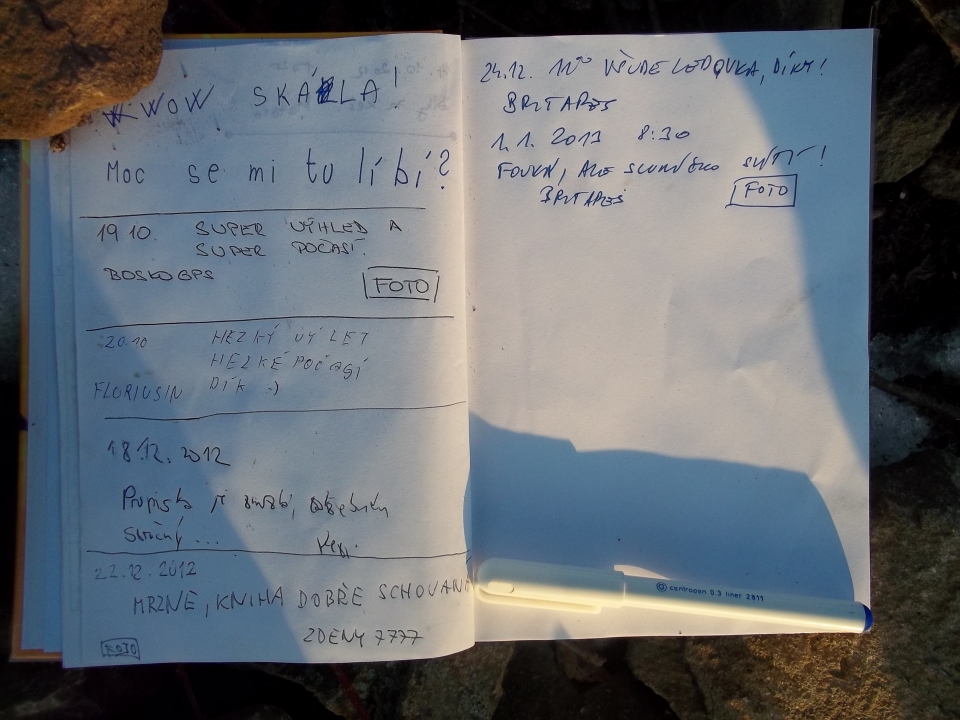 WOW SKÁLA!
Moc se mi tu líbí?
19.10. SUPER VÝHLED A
SUPER POČASÍ.
BOSKOGPS FOTO
20.10 HEZKÝ VÝLET
HEZKÉ POČASÍ
FLORIUSIN DÍK :)
18.12.2012
Propiska je
stručný ...
22.12.2012
MRZNE, KNIHA DOBŘE SCHOVANÁ
ZDENY 7777
FOTO
24.12. 11°° VŠUDE LEDOVKA, DÍKY!
BRTAPES
1.1. 2013 8:30
FOUKÁ, ALE SLUNÍČKO SVÍTÍ!
BRTAPES FOTO
centropen 0.3 liner 2811